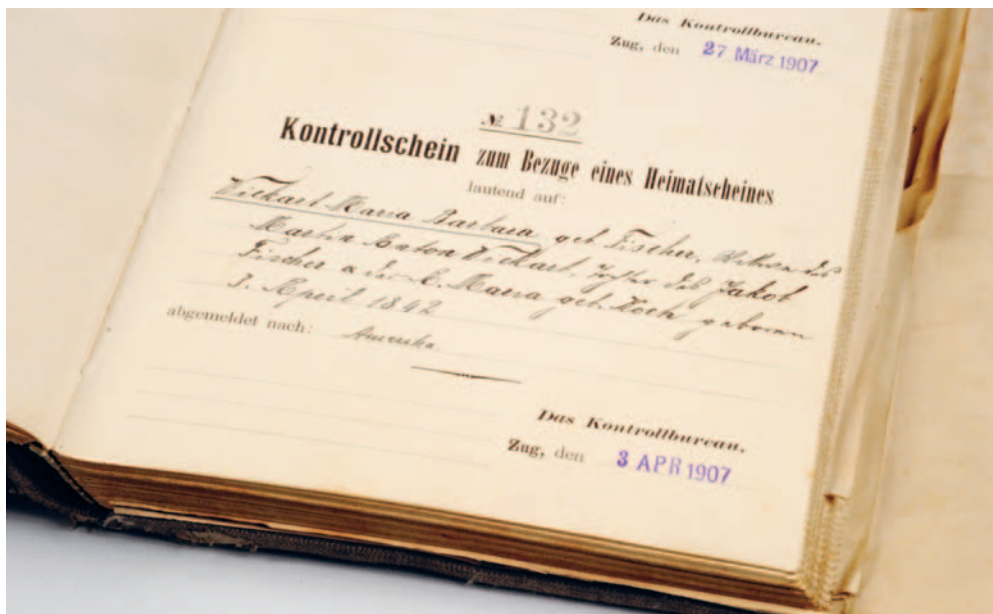 Das Kontrollbureau.
Zug, den 27 März 1907
№ 132
Kontrollschein zum Bezuge eines Heimatscheines
lautend auf:
Wickart Maria Barbara geb. Fischer, Witwe des
Martin Anton Wickart, Tochter des Jakob
Fischer & der C. Maria geb. Koch geboren
3. April 1842
abgemeldet nach: Amerika.
Das Kontrollbureau.
Zug, den 3 APR 1907